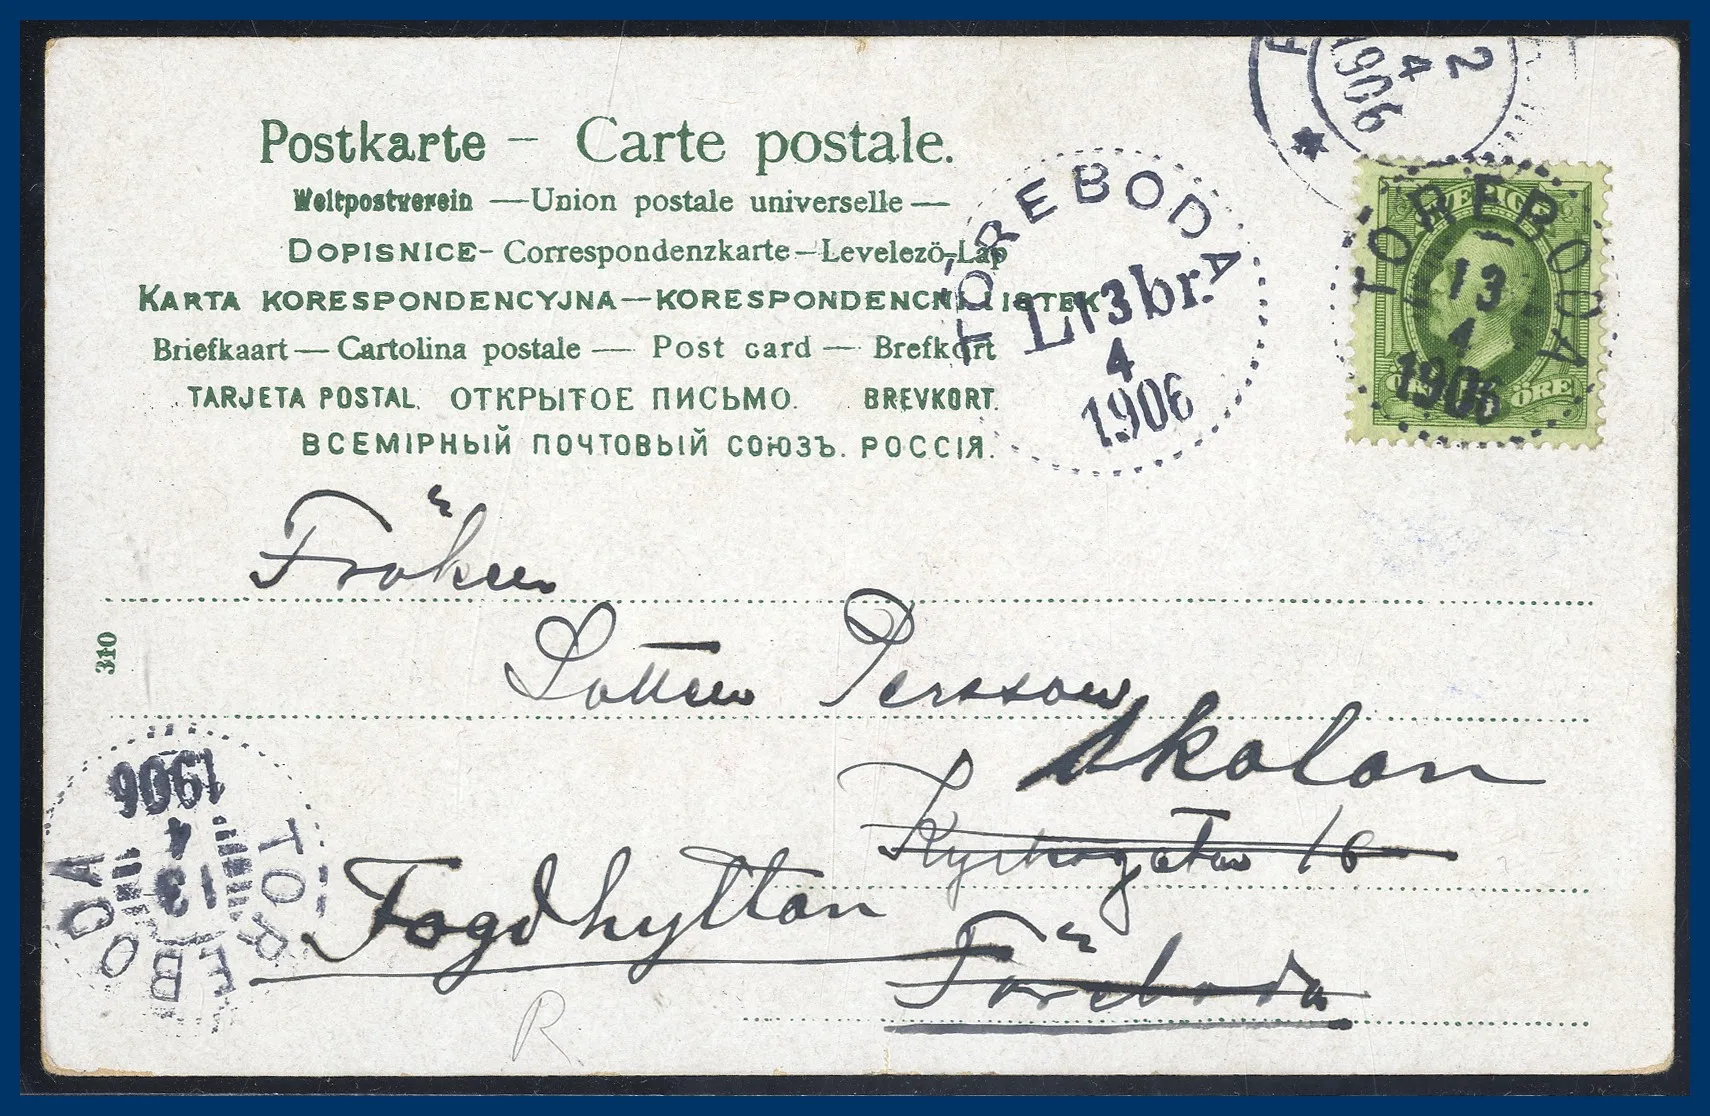 Postkarte – Carte postale.
Weltpostverein — Union postale universelle —
DOPISNICE - Correspondenzkarte – Levelezö-Lap
KARTA KORESPONDENCYJNA — KORESPONDENCNI LISTEK
Briefkaart — Cartolina postale — Post card — Brefkort
TARJETA POSTAL. ОТКРЫТОЕ ПИСЬМО. BREVKORT.
ВСЕМІРНЫЙ ПОЧТОВЫЙ СОЮЗЪ. РОССІЯ.
2
4
1906
TÖREBODA
Lr3br.
4
1906
SVERIGE
ÖRE
TÖREBODA
13
4
1906
Fröken
310
Lotten Persson
skolan
Kyrkogatan 16
Fogdhyttan
Töreboda
TÖREBODA
13
4
1906
R